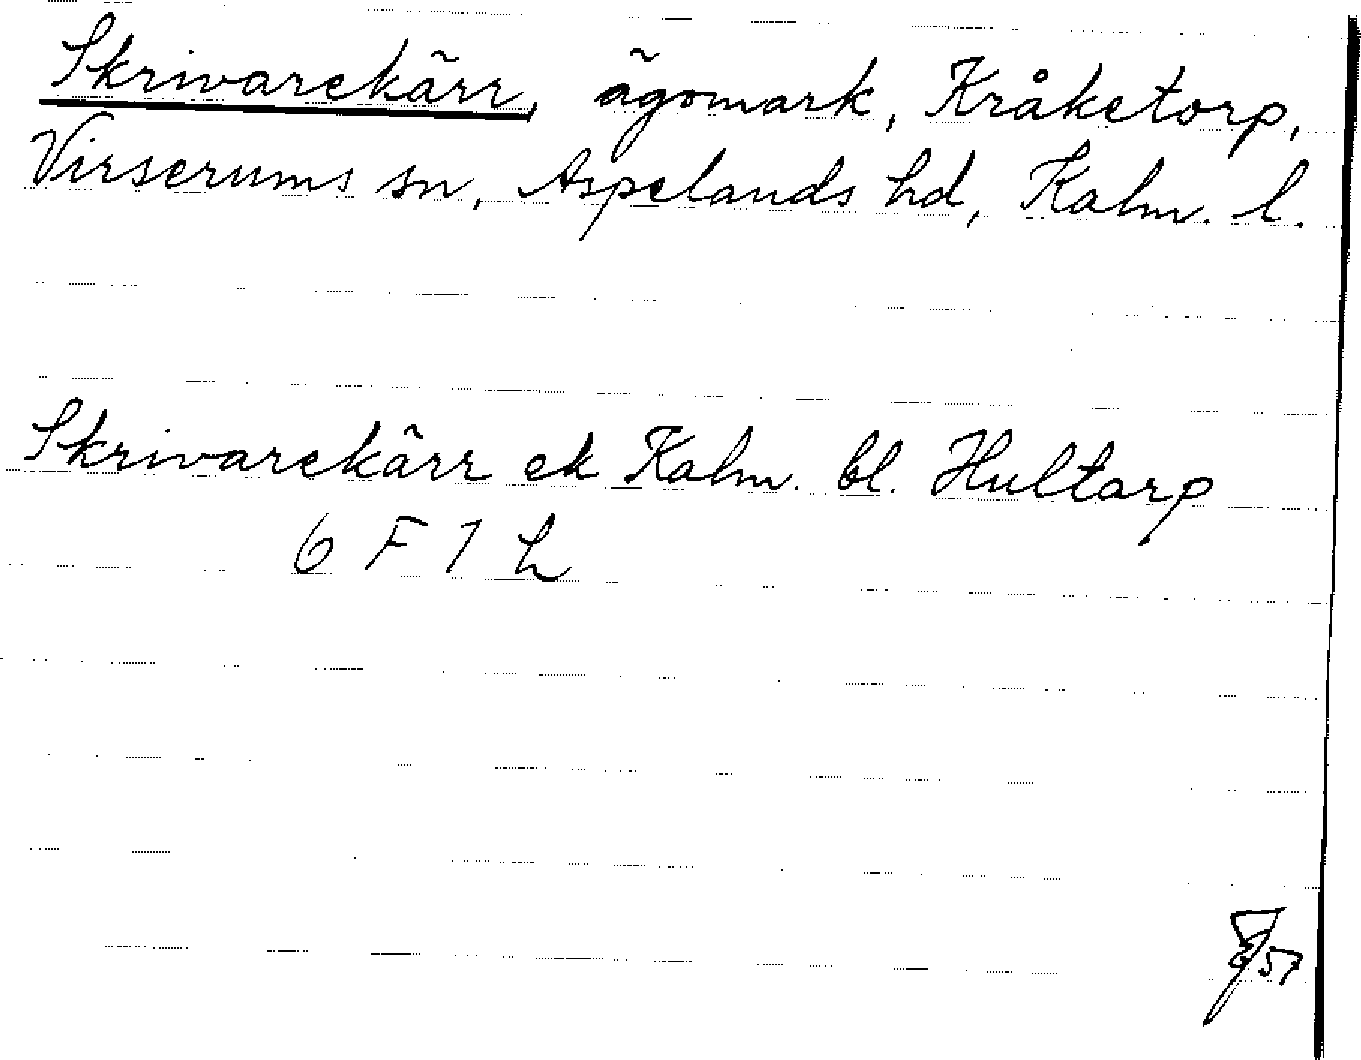 Skrivarekärr, ägomark, Kråketorp,
Virserums sn, Aspelands hd, Kalm. l.
Skrivarekärr ek Kalm. bl. Hultarp
6 F 1 h
57